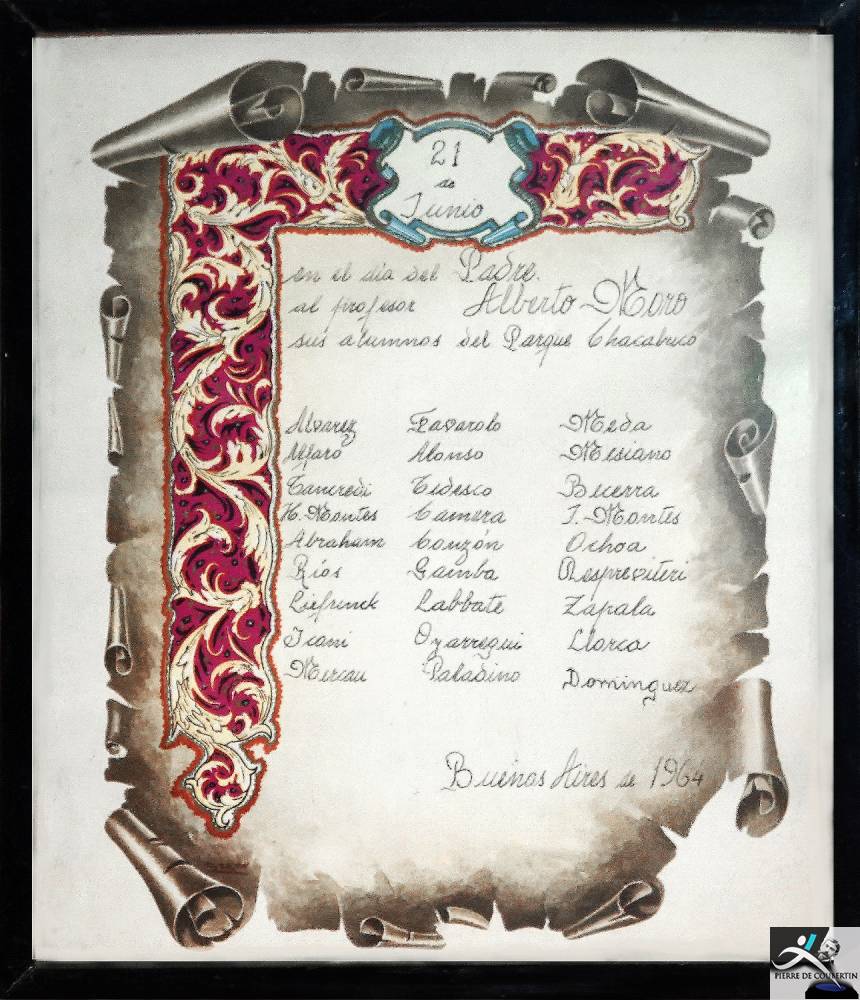 21
de
Junio
en el dia del Padre.
al profesor Alberto Moro
sus alumnos del Parque Chacabuco
Alvarez Favarolo Meda
Alfaro Alonso Mesiano
Tancredi Tedesco Becerra
H. Montes Camera J. Montes
Abraham Couzón Ochoa
Ríos Gamba Respreviteri
Liefrinck Labbate Zapala
Icani Oyarregui Llorca
Mercau Paladino Dominguez
Buenos Aires de 1964
PIERRE DE COUBERTIN